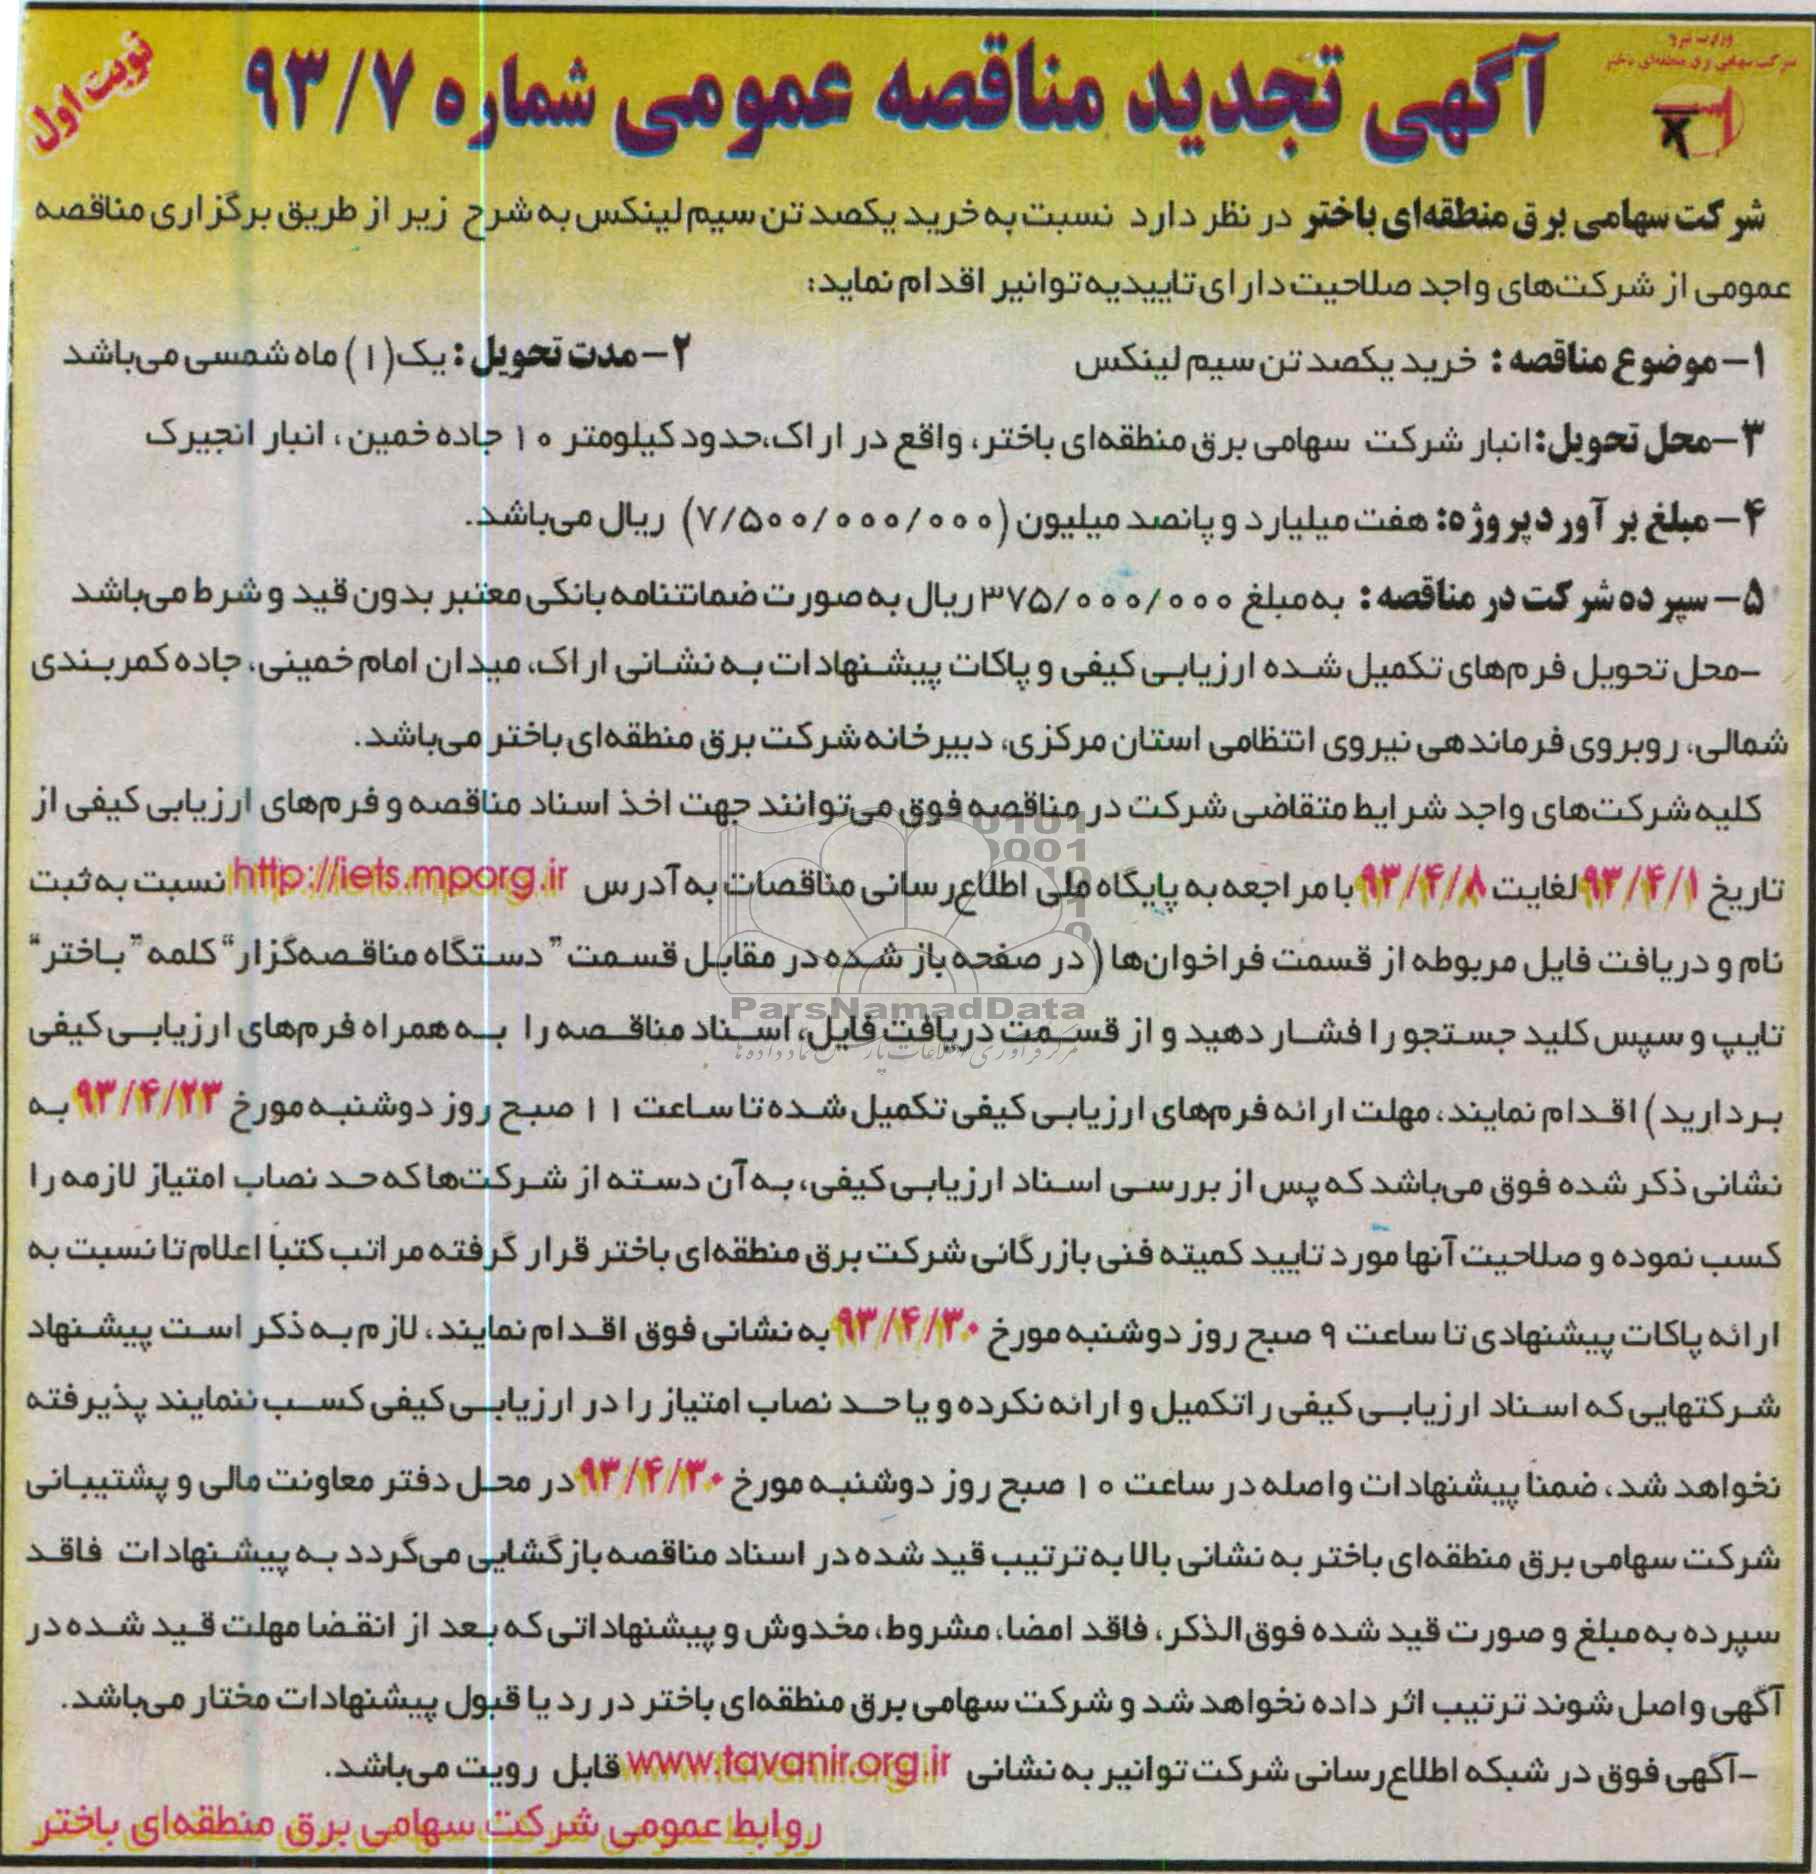 وزارت نیرو
شرکت سهامی برق منطقه‌ای باختر
نوبت اول
آگهی تجدید مناقصه عمومی شماره ۹۳/۷
شرکت سهامی برق منطقه‌ای باختر در نظر دارد نسبت به خرید یکصد تن سیم لینکس به شرح زیر از طریق برگزاری مناقصه
عمومی از شرکت‌های واجد صلاحیت دارای تاییدیه توانیر اقدام نماید:
۱- موضوع مناقصه: خرید یکصد تن سیم لینکس ۲- مدت تحویل: یک (۱) ماه شمسی می‌باشد
۳- محل تحویل: انبار شرکت سهامی برق منطقه‌ای باختر، واقع در اراک، حدود کیلومتر ۱۰ جاده خمین، انبار انجیرک
۴- مبلغ برآورد پروژه: هفت میلیارد و پانصد میلیون (۷/۵۰۰/۰۰۰/۰۰۰) ریال می‌باشد.
۵- سپرده شرکت در مناقصه: به مبلغ ۳۷۵/۰۰۰/۰۰۰ ریال به صورت ضمانتنامه بانکی معتبر بدون قید و شرط می‌باشد
-محل تحویل فرم‌های تکمیل شده ارزیابی کیفی و پاکات پیشنهادات به نشانی اراک، میدان امام خمینی، جاده کمربندی
شمالی، روبروی فرماندهی نیروی انتظامی استان مرکزی، دبیرخانه شرکت برق منطقه‌ای باختر می‌باشد.
کلیه شرکت‌های واجد شرایط متقاضی شرکت در مناقصه فوق می‌توانند جهت اخذ اسناد مناقصه و فرم‌های ارزیابی کیفی از
تاریخ ۹۳/۴/۱ لغایت ۹۳/۴/۸ با مراجعه به پایگاه ملی اطلاع‌رسانی مناقصات به آدرس http://iets.mporg.ir نسبت به ثبت
نام و دریافت فایل مربوطه از قسمت فراخوان‌ها (در صفحه باز شده در مقابل قسمت "دستگاه مناقصه‌گزار" کلمه "باختر"
تایپ و سپس کلید جستجو را فشار دهید و از قسمت دریافت فایل، اسناد مناقصه را به همراه فرم‌های ارزیابی کیفی
بردارید) اقدام نمایند، مهلت ارائه فرم‌های ارزیابی کیفی تکمیل شده تا ساعت ۱۱ صبح روز دوشنبه مورخ ۹۳/۴/۲۳ به
نشانی ذکر شده فوق می‌باشد که پس از بررسی اسناد ارزیابی کیفی، به آن دسته از شرکت‌ها که حد نصاب امتیاز لازمه را
کسب نموده و صلاحیت آنها مورد تایید کمیته فنی بازرگانی شرکت برق منطقه‌ای باختر قرار گرفته مراتب کتباً اعلام تا نسبت به
ارائه پاکات پیشنهادی تا ساعت ۹ صبح روز دوشنبه مورخ ۹۳/۴/۳۰ به نشانی فوق اقدام نمایند، لازم به ذکر است پیشنهاد
شرکتهایی که اسناد ارزیابی کیفی را تکمیل و ارائه نکرده و یا حد نصاب امتیاز را در ارزیابی کیفی کسب ننمایند پذیرفته
نخواهد شد، ضمناً پیشنهادات واصله در ساعت ۱۰ صبح روز دوشنبه مورخ ۹۳/۴/۳۰ در محل دفتر معاونت مالی و پشتیبانی
شرکت سهامی برق منطقه‌ای باختر به نشانی بالا به ترتیب قید شده در اسناد مناقصه بازگشایی می‌گردد به پیشنهادات فاقد
سپرده به مبلغ و صورت قید شده فوق‌الذکر، فاقد امضا، مشروط، مخدوش و پیشنهاداتی که بعد از انقضا مهلت قید شده در
آگهی واصل شوند ترتیب اثر داده نخواهد شد و شرکت سهامی برق منطقه‌ای باختر در رد یا قبول پیشنهادات مختار می‌باشد.
-آگهی فوق در شبکه اطلاع‌رسانی شرکت توانیر به نشانی www.tavanir.org.ir قابل رویت می‌باشد.
روابط عمومی شرکت سهامی برق منطقه‌ای باختر
ParsNamadData
مرکز فرآوری اطلاعات پارس نماد داده‌ها